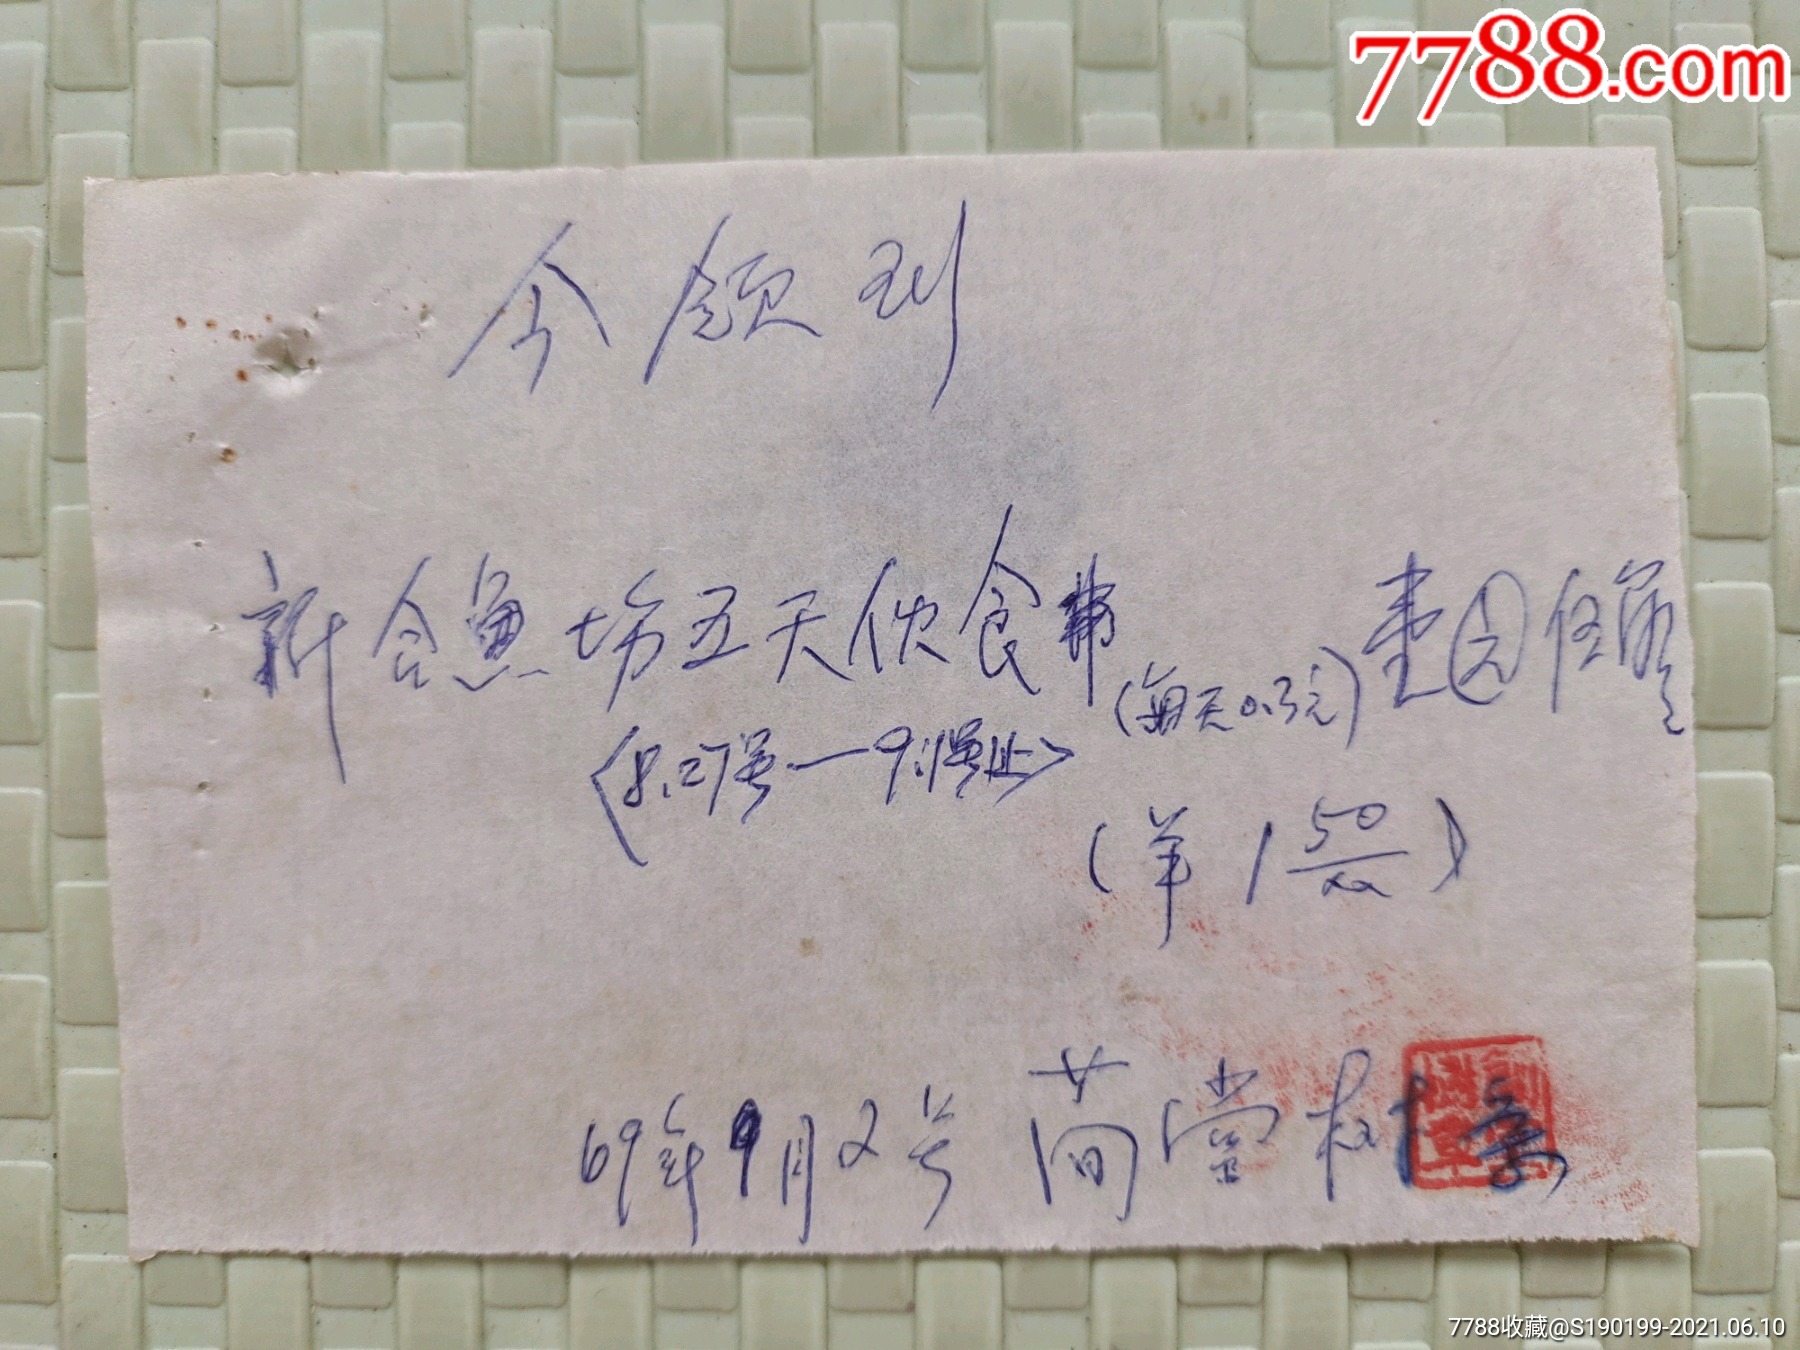 7788.com
今领到
新合鱼坊五天伙食费(每天0.3元)壹园伍角正
<8.27号—9.1号止>
(羊1.50)
69年9月2号 简堂树
7788收藏@S190199-2021.06.10